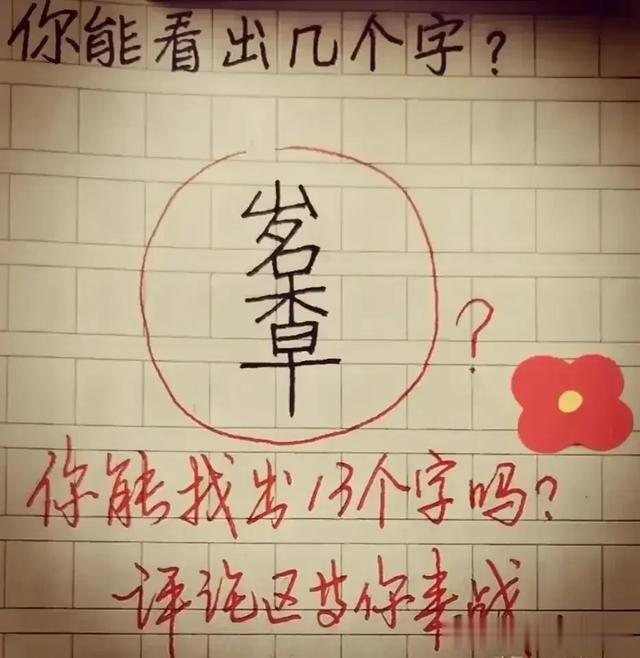 你能看出几个字？
？
你能找出13个字吗？
评论区等你来战